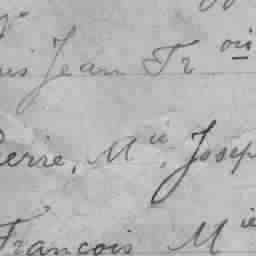 Jean Fr ois
Pierre, M ie, Josep
François M ie